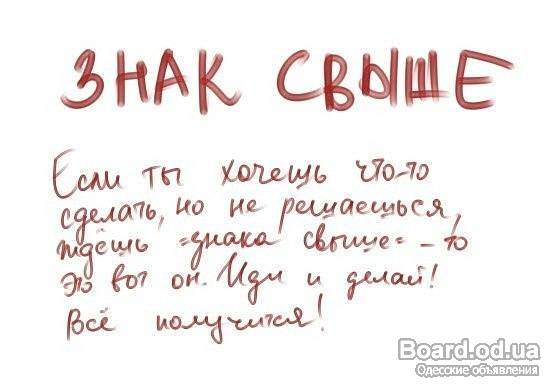 ЗНАК СВЫШЕ
Если ты хочешь что-то
сделать, но не решаешься,
ждёшь "знака свыше" - то
это вот он. Иди и делай!
Всё получится!
Board.od.ua
Одесские объявления